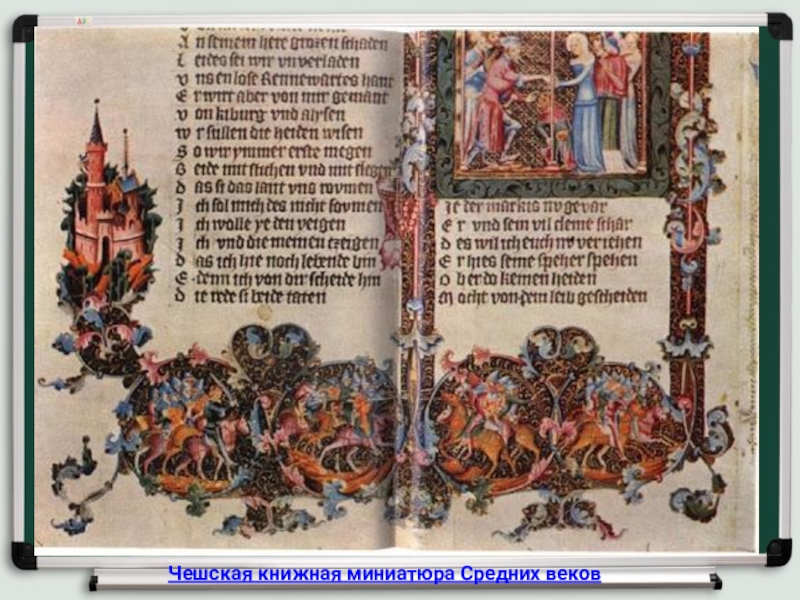 A n seinem here grozen schaden
L eides sei wir vn verladen
V ns en lose Rennewartes hant
E r wirt aber von mir gemant
V on kiburg vnd alysen
W r sullen die heiden wisen
S o wir ymmer erste megen
B eide mit stichen vnd mit slegen
D as si das lant vns rovmen
I ch sol mich des nicht sovmen
I ch wolle ye den veigen
I ch vnd die meinen erzeigen
D as ich hie noch lebende bin
E denn ich von dir scheide hin
D ie rede si beide taten
Ie der markis nv gevar
E r vnd sein vil cleine schar
D es wil ich euch nv veriehen
E r hies seine speher spehen
O b er do kemen heiden
M ocht von dem leib gescheiden
Чешская книжная миниатюра Средних веков